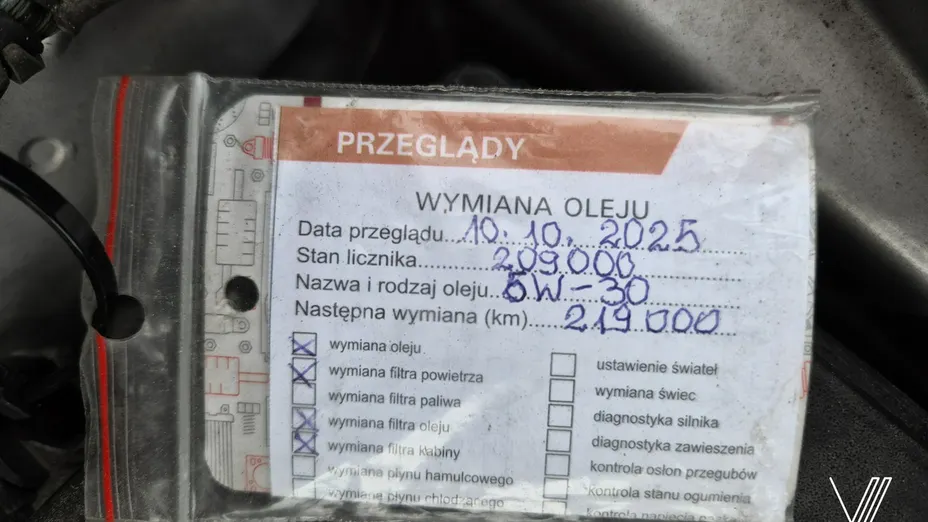 PRZEGLĄDY
WYMIANA OLEJU
Data przeglądu 10.10.2025
Stan licznika 209.000
Nazwa i rodzaj oleju 5W-30
Następna wymiana (km) 219 000
wymiana oleju
wymiana filtra powietrza
wymiana filtra paliwa
wymiana filtra oleju
wymiana filtra kabiny
wymiana płynu hamulcowego
wymiana płynu chłodzącego
ustawienie świateł
wymiana świec
diagnostyka silnika
diagnostyka zawieszenia
kontrola osłon przegubów
kontrola stanu ogumienia